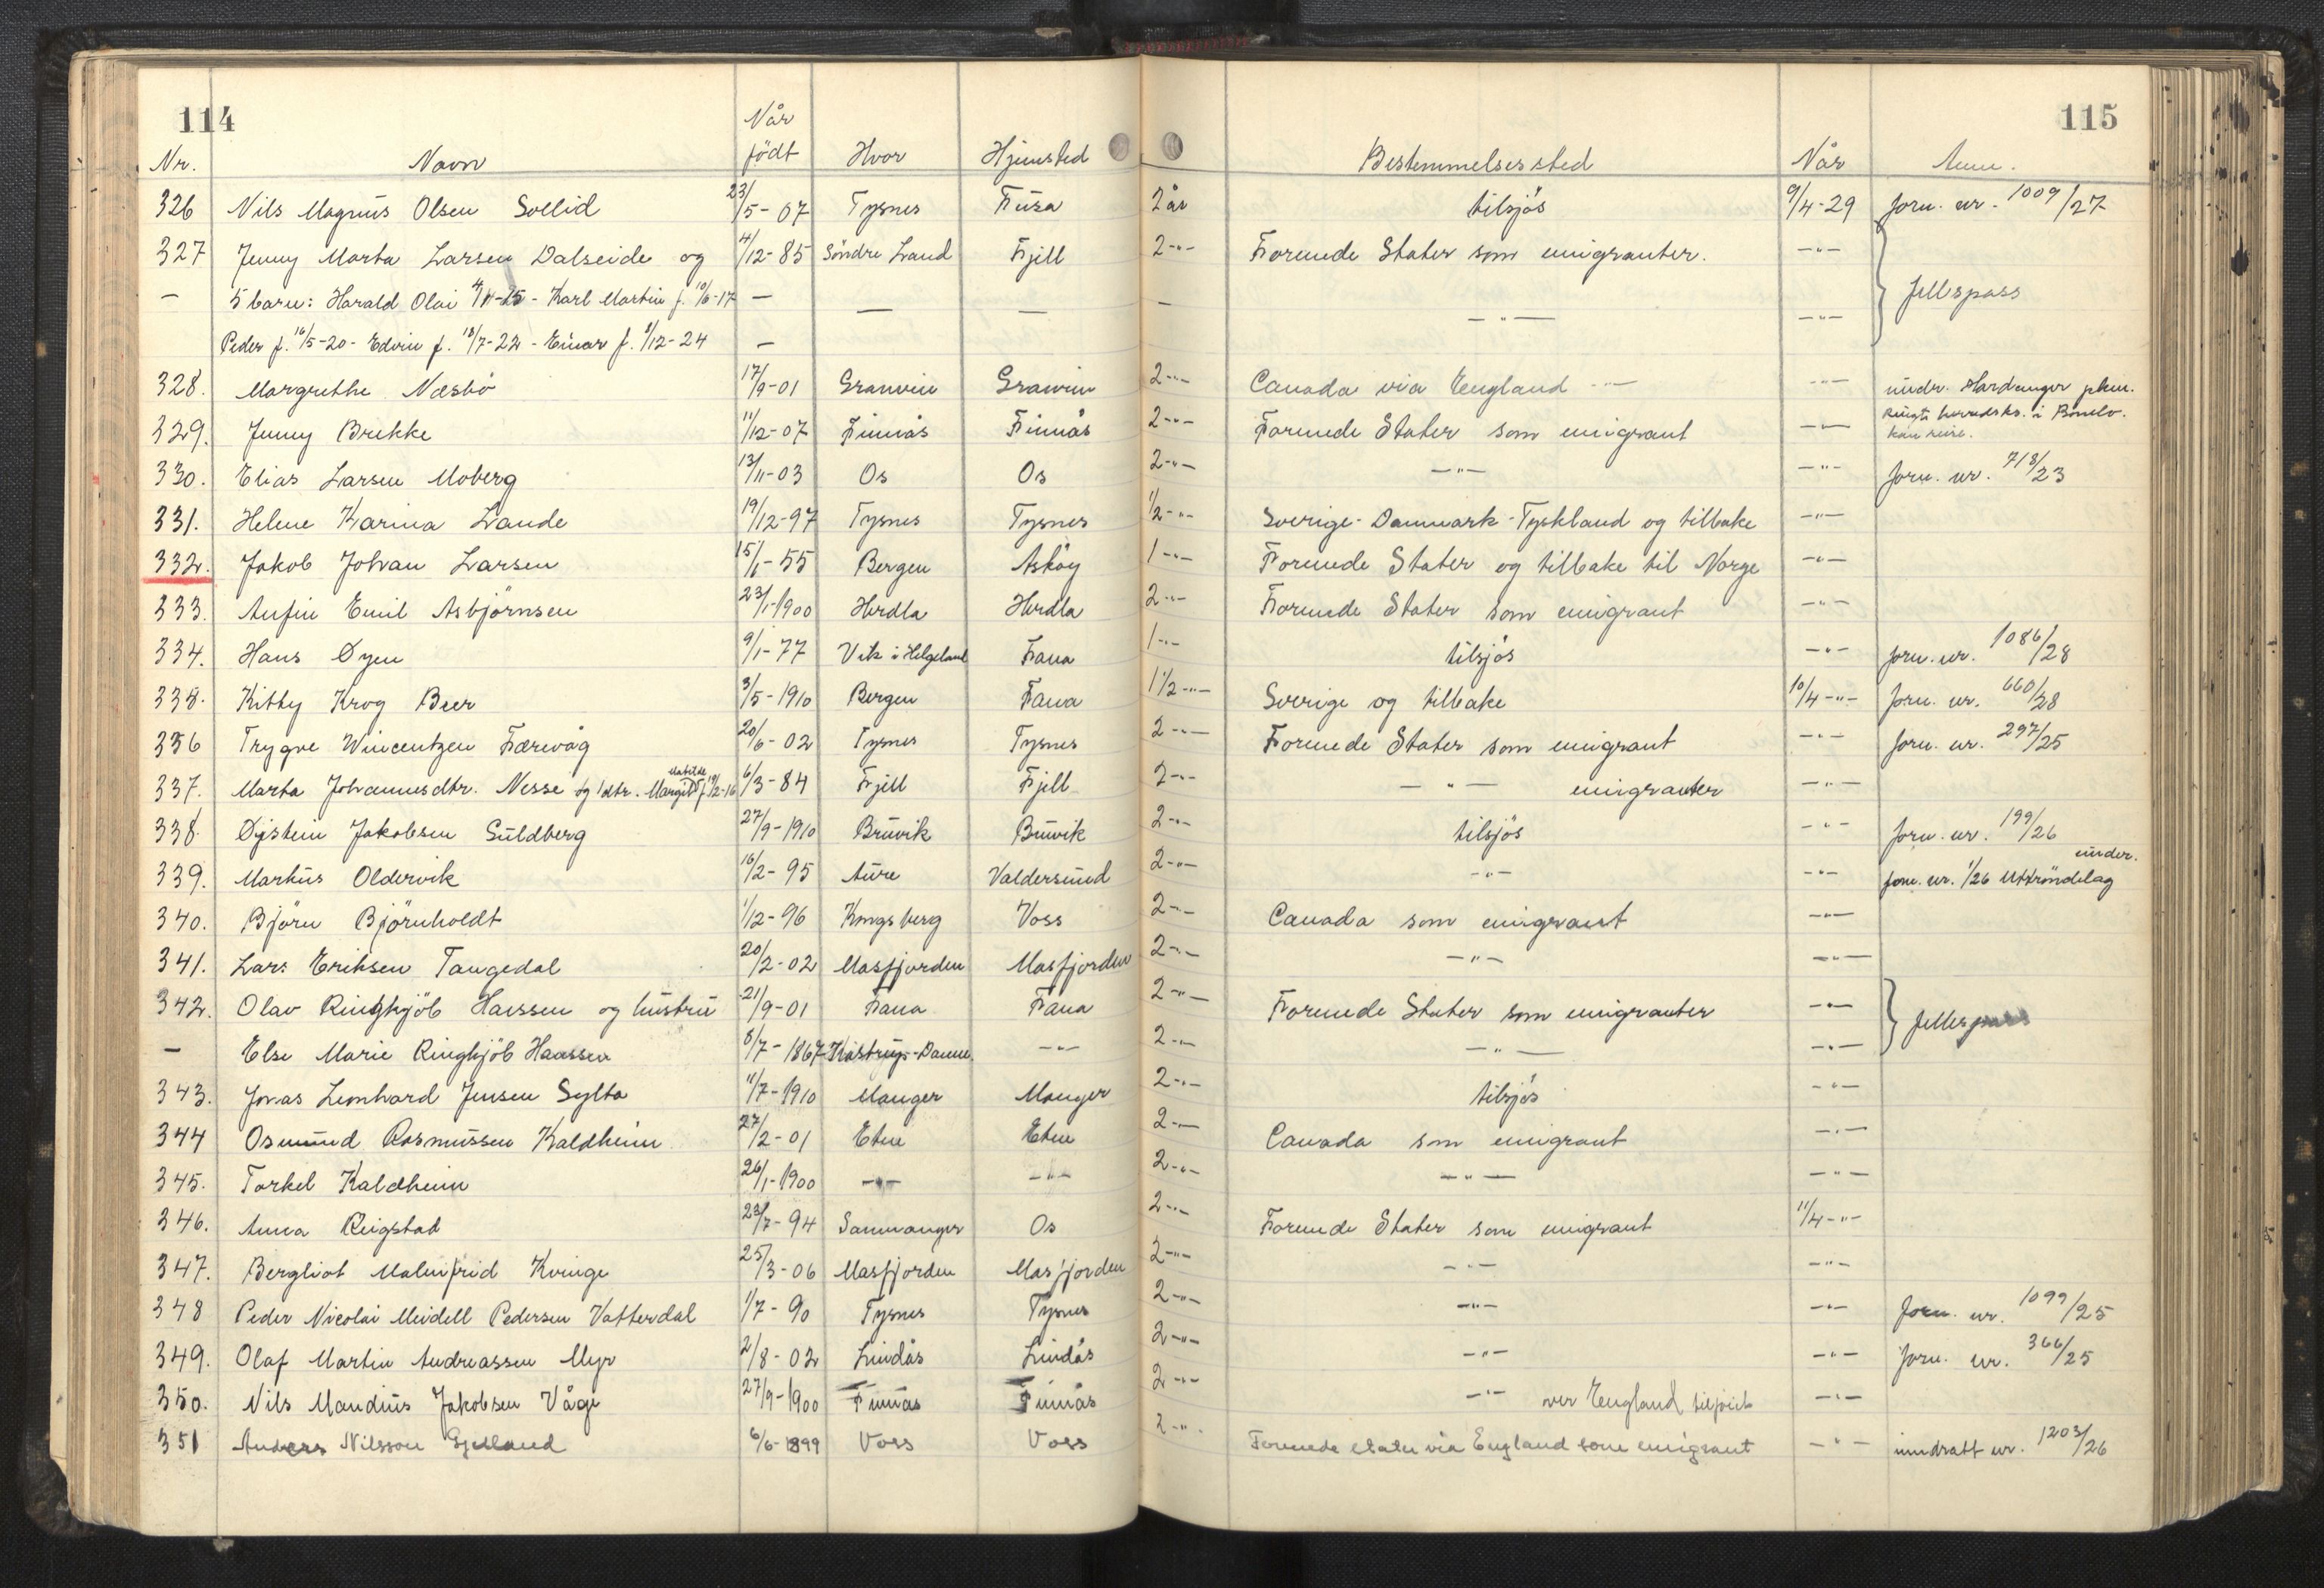 114
115
Når
Nr. Navn født Hvor Hjemsted Bestemmelsessted Når Anm.
326 Nils Magnus Olsen Sollid 23/5-07 Tysnes Fusa 2 år tilsjøs 9/4-29 Jorn. nr. 1009/27
327 Jenny Marta Larsen Dalseide og 4/12-85 Søndre Land Fjell 2-"- Forenede Stater som emigranter. -"-
- 5 barn: Harald Olai - Karl Martin f. 10/6-17 - - - - -"- -"- } fellespass
Peder f. 16/5-20 - Edvin f. 18/7-22 - Einar f. 8/12-24 -
328. Margrethe Næsbø 17/9-01 Granvin Granvin 2-"- Canada via England -"- undr. Hardanger pkm.
329. Jenny Brekke 11/12-07 Finnås Finnås 2-"- Forenede Stater som emigrant -"- Ringt herredsks. i Bømlo. kan reise.
330. Elias Larsen Moberg 13/11-03 Os Os 2-"- -"- -"- Jorn. nr. 718/23
331. Helene Karina Lande 19/12-97 Tysnes Tysnes 1/2-"- Sverige-Danmark-Tyskland og tilbake -"-
332. Jakob Johan Larsen 15/6-55 Bergen Askøy 1-"- Forenede Stater og tilbake til Norge -"-
333. Anfin Emil Asbjørnsen 23/1-1900 Herdla Herdla 2-"- Forenede Stater som emigrant -"-
334. Hans Øyen 9/1-77 Vik i Helgeland Fana 1-"- tilsjøs -"- Jorn. nr. 1086/28
335. Kitty Krog Beer 3/5-1910 Bergen Fana 1 1/2-"- Sverige og tilbake 10/4-"- Jorn. nr. 660/28
336 Trygve Wincentzen Færevåg 20/6-02 Tysnes Tysnes 2-"- Forenede Stater som emigrant -"- Jorn. nr. 297/25
337. Marta Johannesdtr. Nesse og 1 dtr. Margit Matilde f. 19/2-16 6/3-84 Fjell Fjell 2-"- -"- emigranter -"-
338. Øystein Jakobsen Suldberg 27/9-1910 Bruvik Bruvik 2-"- tilsjøs -"- Jorn. nr. 199/26
339. Markus Oldervik 16/2-95 Aure Valdersund 2-"- -"- -"- Jorn. nr. 1/26 Uttrøndelag under.
340. Bjørn Bjørnholdt 1/12-96 Kongsberg Voss 2-"- Canada som emigrant -"-
341. Lars Eriksen Tangedal 20/2-02 Masfjorden Masfjorden 2-"- -"- -"-
342. Olav Ringhjøb Hanssen og hustru 21/9-01 Fana Fana 2-"- Forenede Stater som emigranter -"- } fellespass
- Else Marie Ringhjøb Hanssen 8/7-1867 Kastrup-Danm. -"- 2-"- -"- -"-
343. Jonas Leonhard Jensen Sylta 11/7-1910 Manger Manger 2-"- tilsjøs -"-
344 Osmund Rasmussen Kaldheim 27/2-01 Etne Etne 2-"- Canada som emigrant -"-
345. Torkel Kaldheim 26/1-1900 -"- -"- 2-"- -"- -"-
346. Anna Reigstad 23/7-94 Samnanger Os 2-"- Forenede Stater som emigrant 11/4-"-
347. Bergliot Malmfrid Kvinge 25/3-06 Masfjorden Masfjorden 2-"- -"- -"-
348 Peder Nicolai Meidell Pedersen Vatterdal 1/7-90 Tysnes Tysnes 2-"- -"- -"- Jorn. nr. 1099/25
349. Olaf Martin Andreassen Myr 2/8-02 Lindås Lindås 2-"- -"- -"- Jorn. nr. 366/25
350. Nils Mandius Jakobsen Våge 27/9-1900 Finnås Finnås 2-"- -"- over England -"-
351 Anders Nilsson Gjelland 6/6-1899 Voss Voss 2-"- Forenede stater via England som emigrant -"- inndratt nr. 1203/26